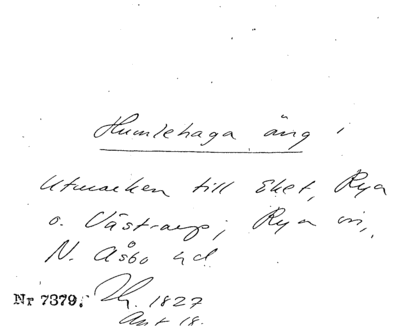 Humlehaga äng i
utmarken till Eket, Rya
o. Västrarp; Rya sn,
N. Åsbo hd
Nr 7379. 1827
Akt 18.